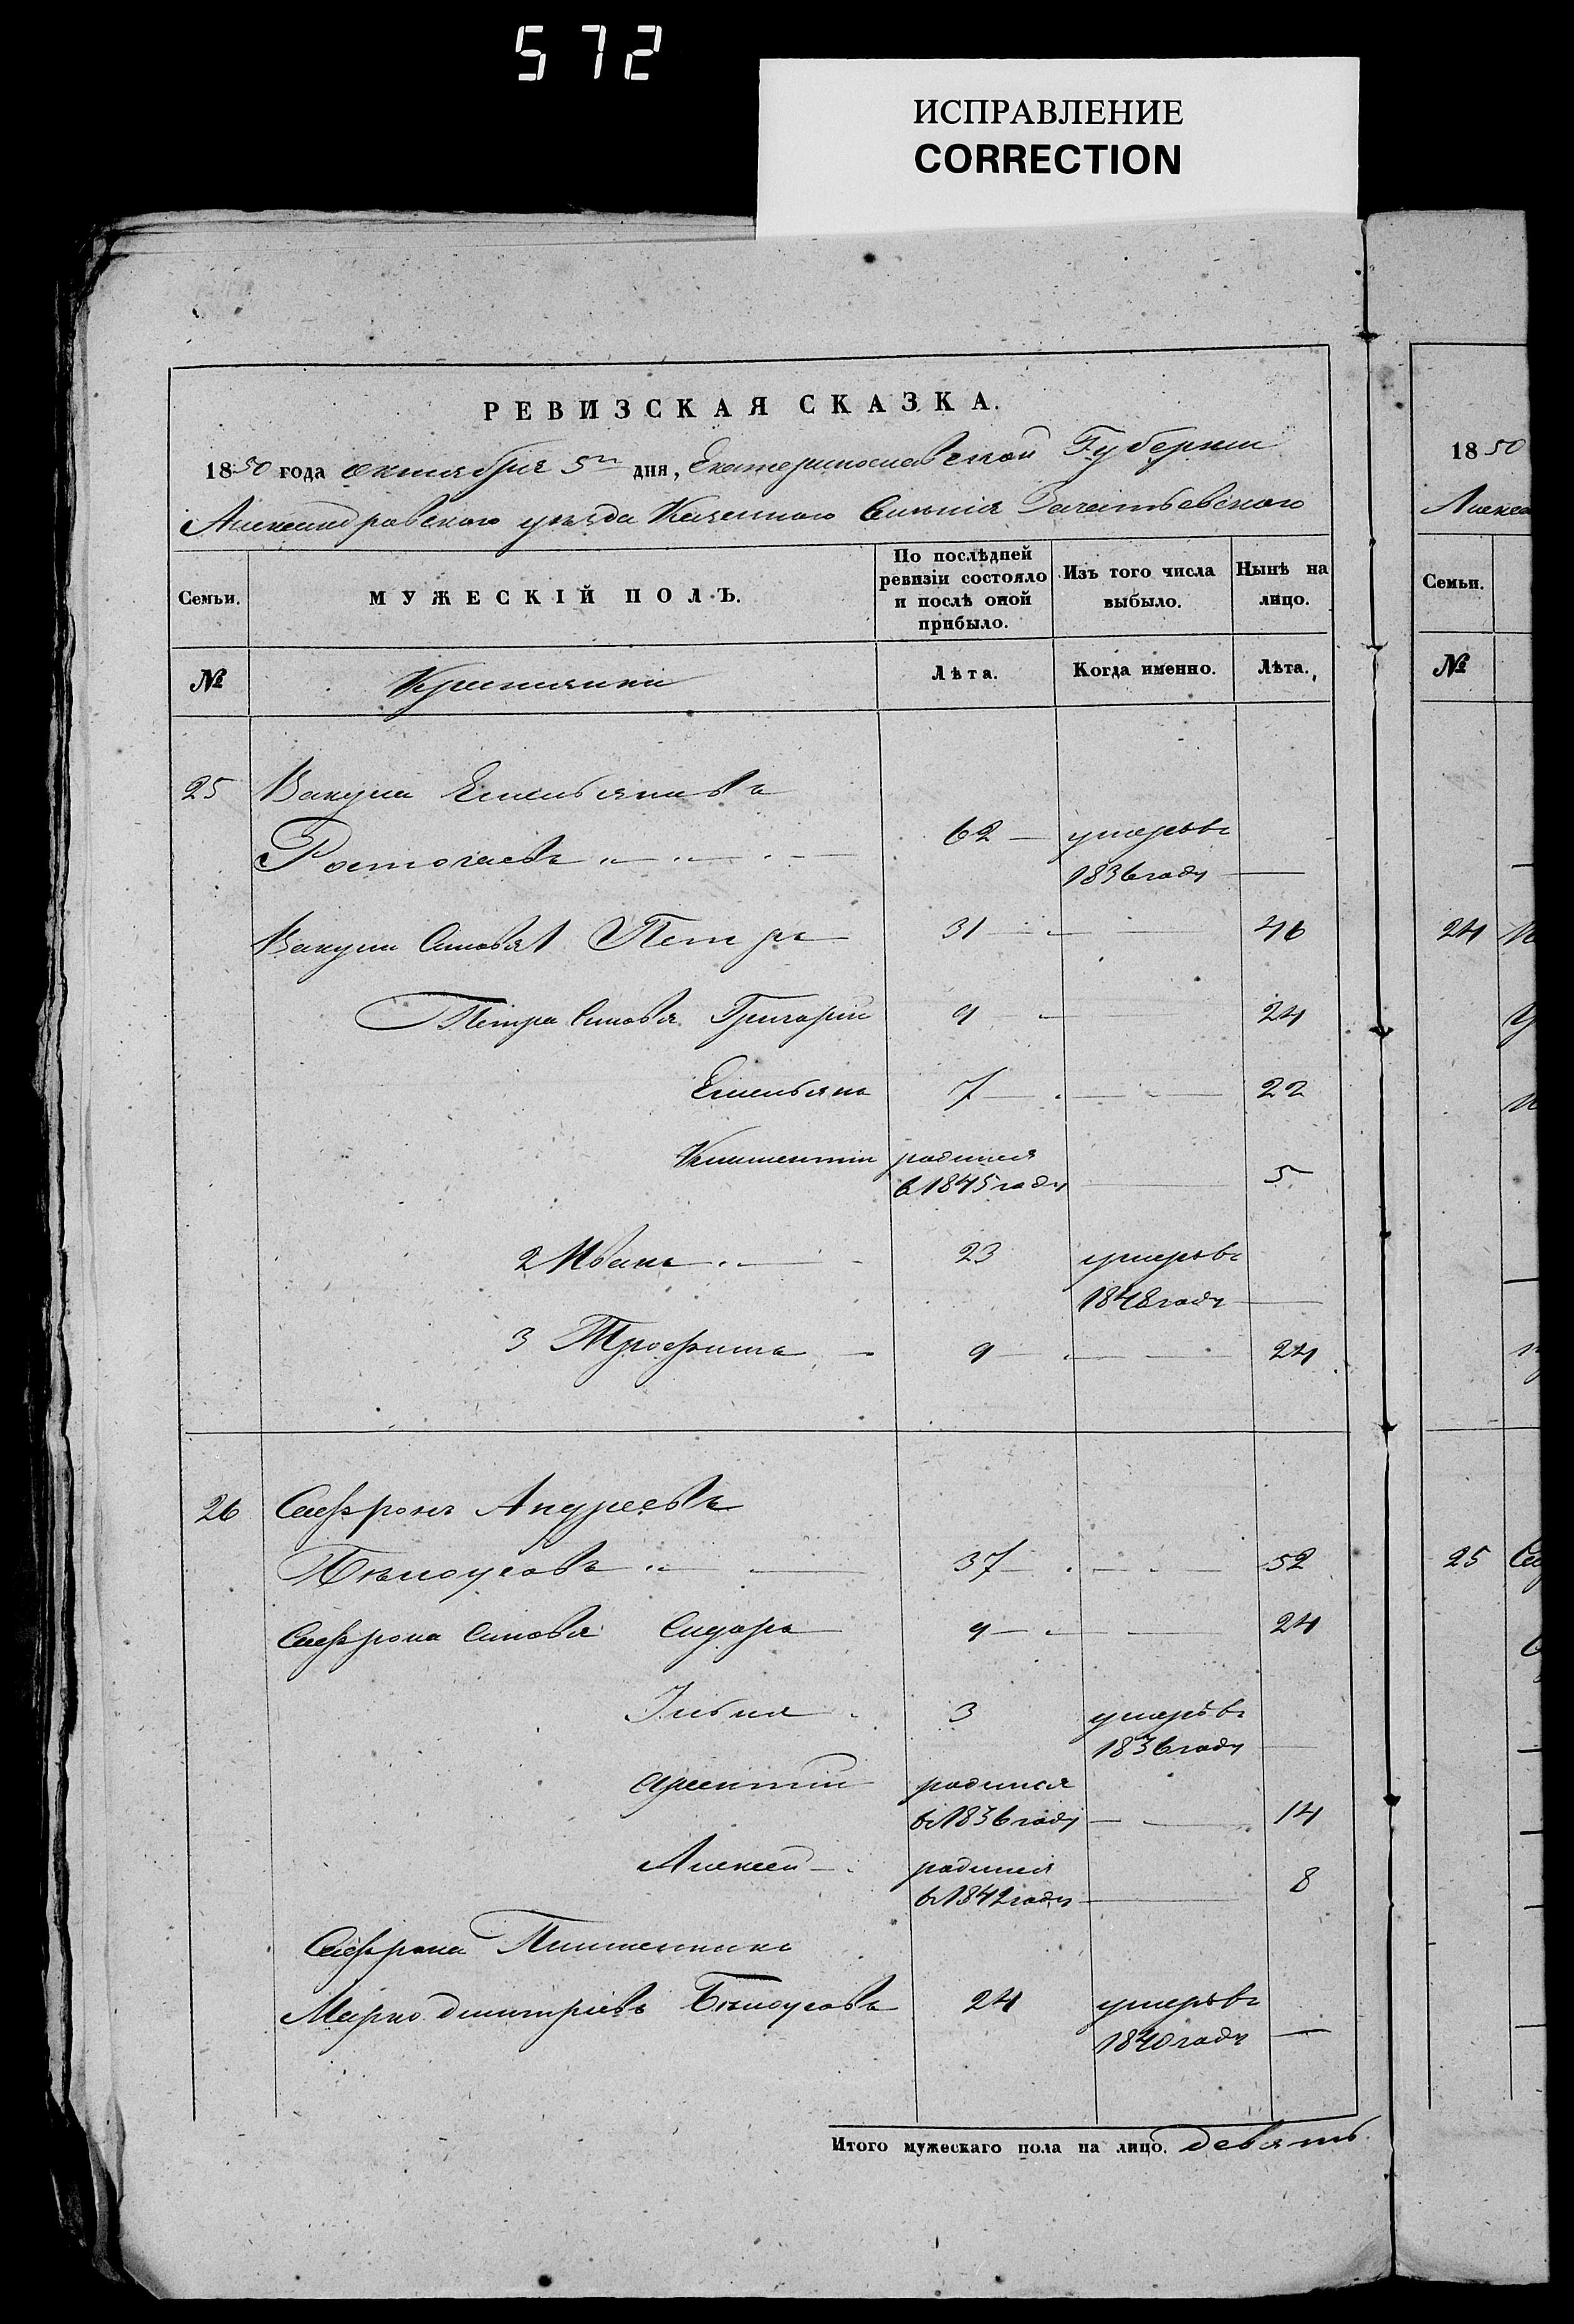 572
ИСПРАВЛЕНИЕ
CORRECTION
РЕВИЗСКАЯ СКАЗКА.
1850 года октября 5го дня, Екатеринославской Губернии
Александровского уезда Казенного Селения Зачатьевского
Семьи. МУЖЕСКІЙ ПОЛЪ. По послѣдней ревизіи состояло и послѣ оной прибыло. Изъ того числа выбыло. Нынѣ на лицо.
№ Крестьяне Лѣта. Когда именно. Лѣта.
25 Вакула Емельяновъ
Ростогаевъ 62 умеръ въ
1836 году
Вакулы Сыновья 1 Петръ 31 46
Петра Сыновья Григорій 9 24
Емельянъ 7 22
Климентий родился
в 1845 году 5
2 Иванъ 23 умеръ въ
1848 году
3 Трофимъ 9 24
26 Сафронъ Андреевъ
Бѣлоусовъ 37 52
Сафрона Сыновья Сидоръ 9 24
Илья 3 умеръ въ
1836 году
Арсентий родился
въ 1836 году 14
Алексей родился
въ 1842 году 8
Сафрона Племенникъ
Марко Дмитріевъ Бѣлоусовъ 24 умеръ въ
1840 году
Итого мужескаго пола на лицо. девять
1850
Алекса
Семьи.
№
24
25